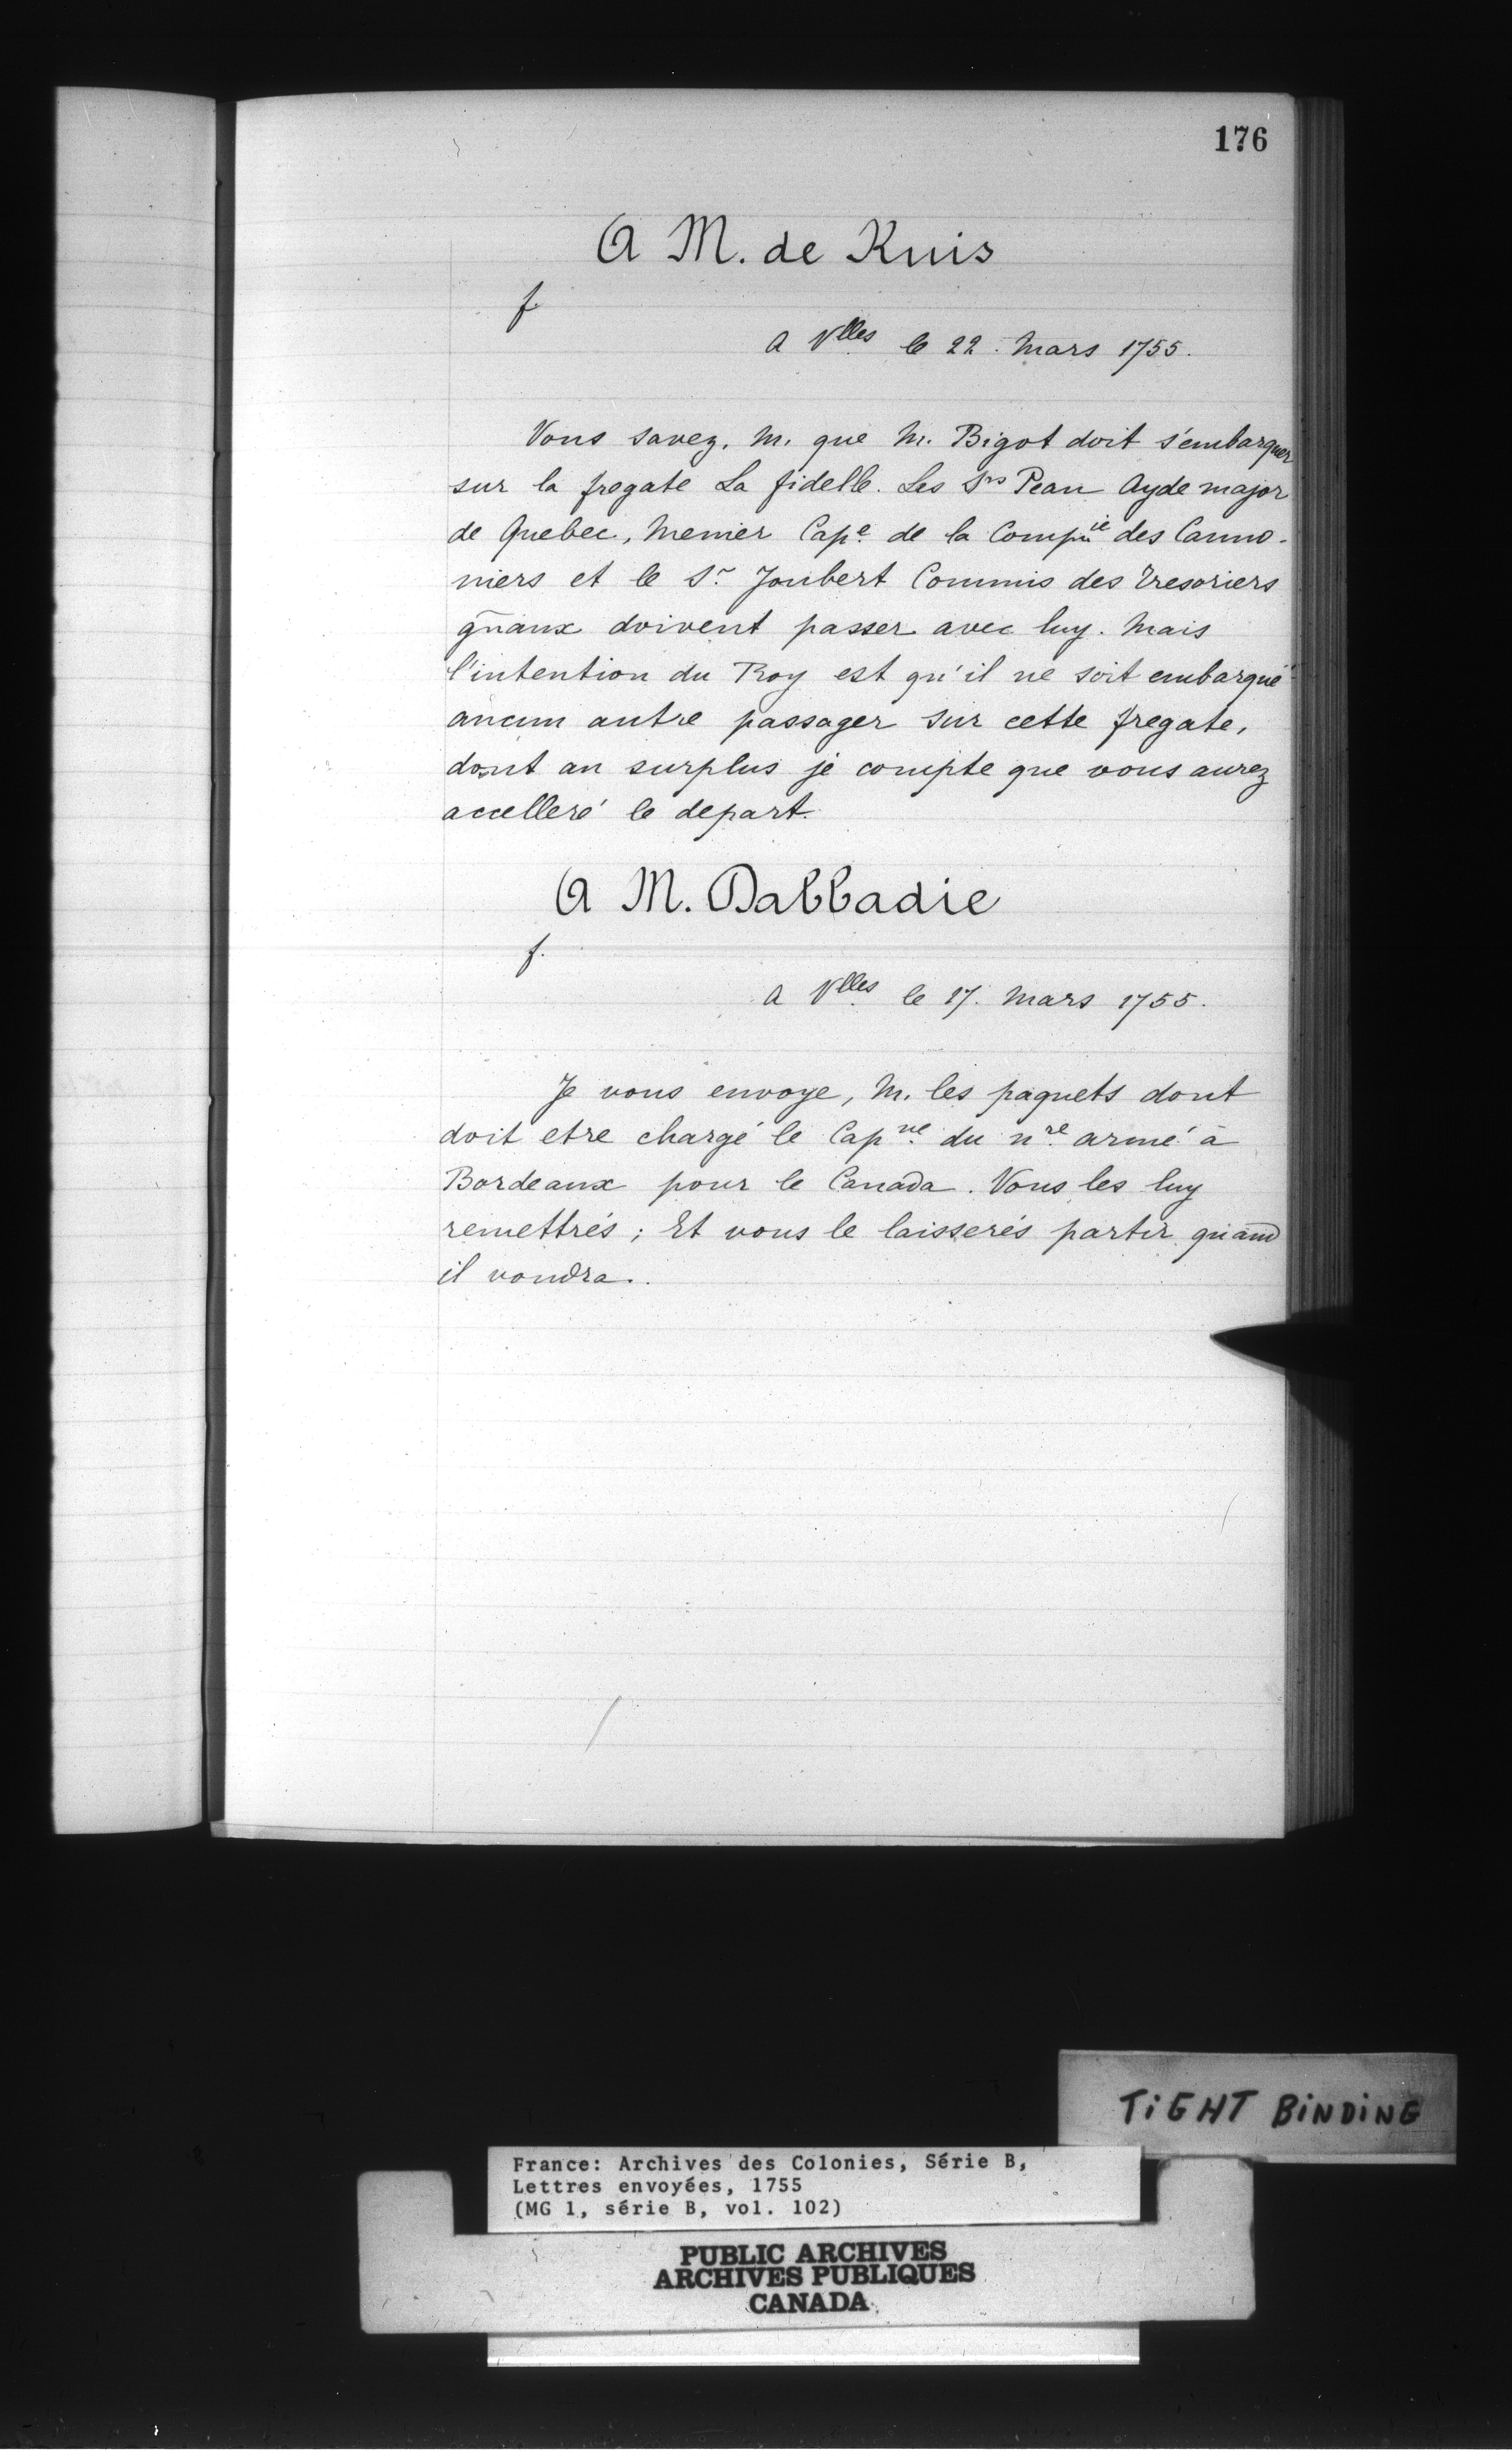 176
A M. de Ruis
f.
A Vlles le 22. Mars 1755.
Vous savez, M. que M. Bigot doit s'embarquer
sur la fregate La fidelle. Les Srs Pean Ayde major
de Quebec, Menier Cape. de la Compnie des Canno-
niers et le Sr. Joubert Commis des Tresoriers
gn̄aux doivent passer avec luy. Mais
l'intention du Roy est qu'il ne soit embarqué
aucun autre passager sur cette fregate,
dont au surplus je compte que vous aurez
accelleré le depart.
A M. Dabbadie
f.
A Vlles le 17. Mars 1755.
Je vous envoye, M. les paquets dont
doit etre chargé le Capne. du nre. armé à
Bordeaux pour le Canada. Vous les luy
remettrés; Et vous le laisserés partir quand
il voudra.
TiGHT BiNDiNG
France: Archives des Colonies, Série B,
Lettres envoyées, 1755
(MG 1, série B, vol. 102)
PUBLIC ARCHIVES
ARCHIVES PUBLIQUES
CANADA